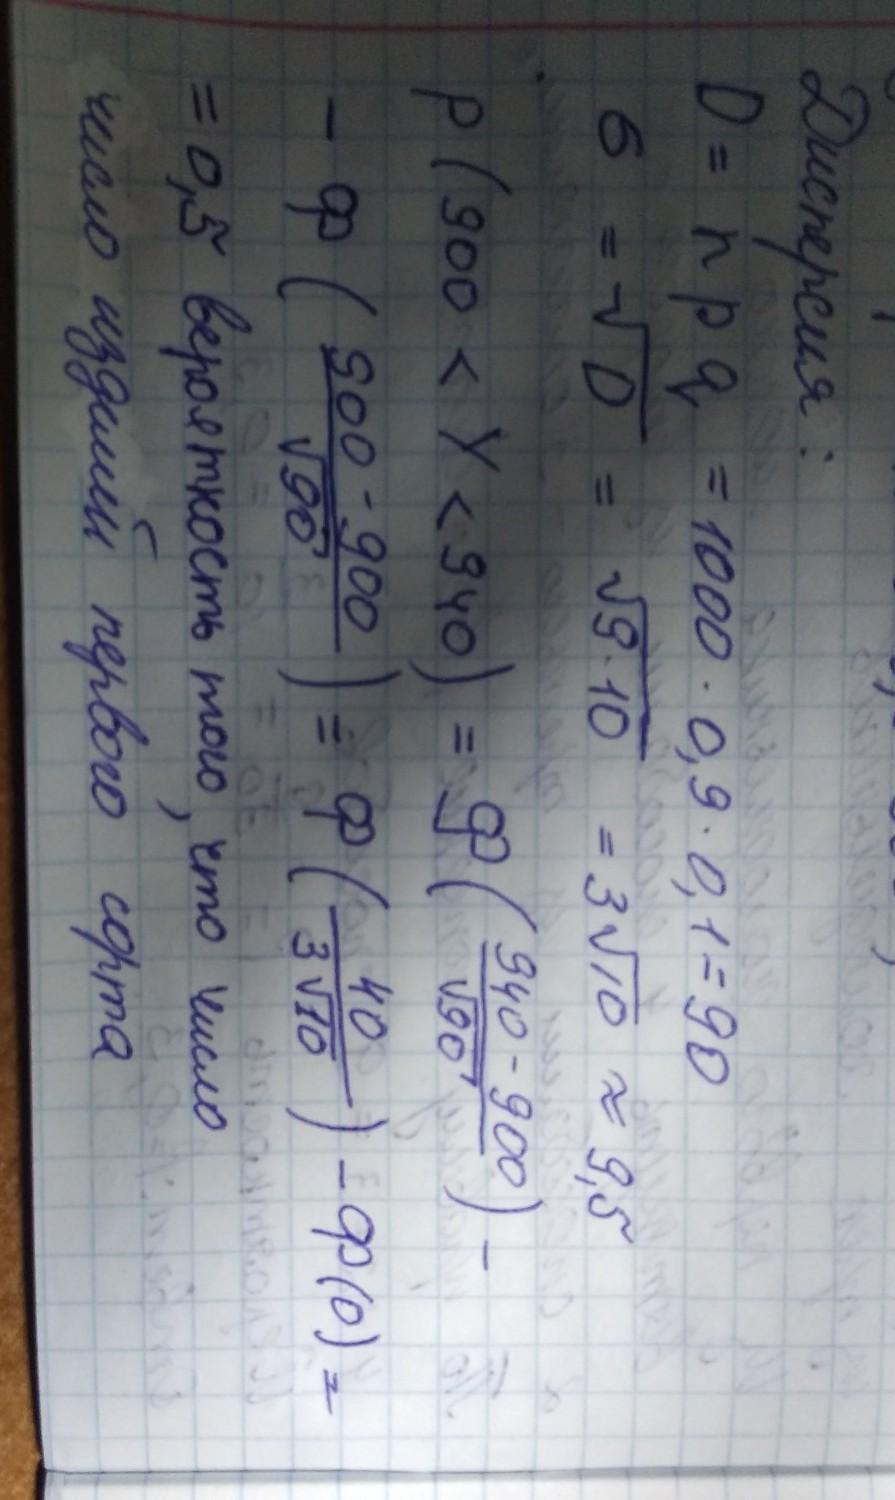 Дисперсия:
D = npq = 1000 · 0,9 · 0,1 = 90
б = √D = √9·10 = 3√10 ≈ 9,5
P(900 < Y < 940) = Ф(940-900/√90) -
- Ф(900-900/√90) = Ф(40/3√10) - Ф(0) =
= 0,5 вероятность того, что число
число изделий первого сорта